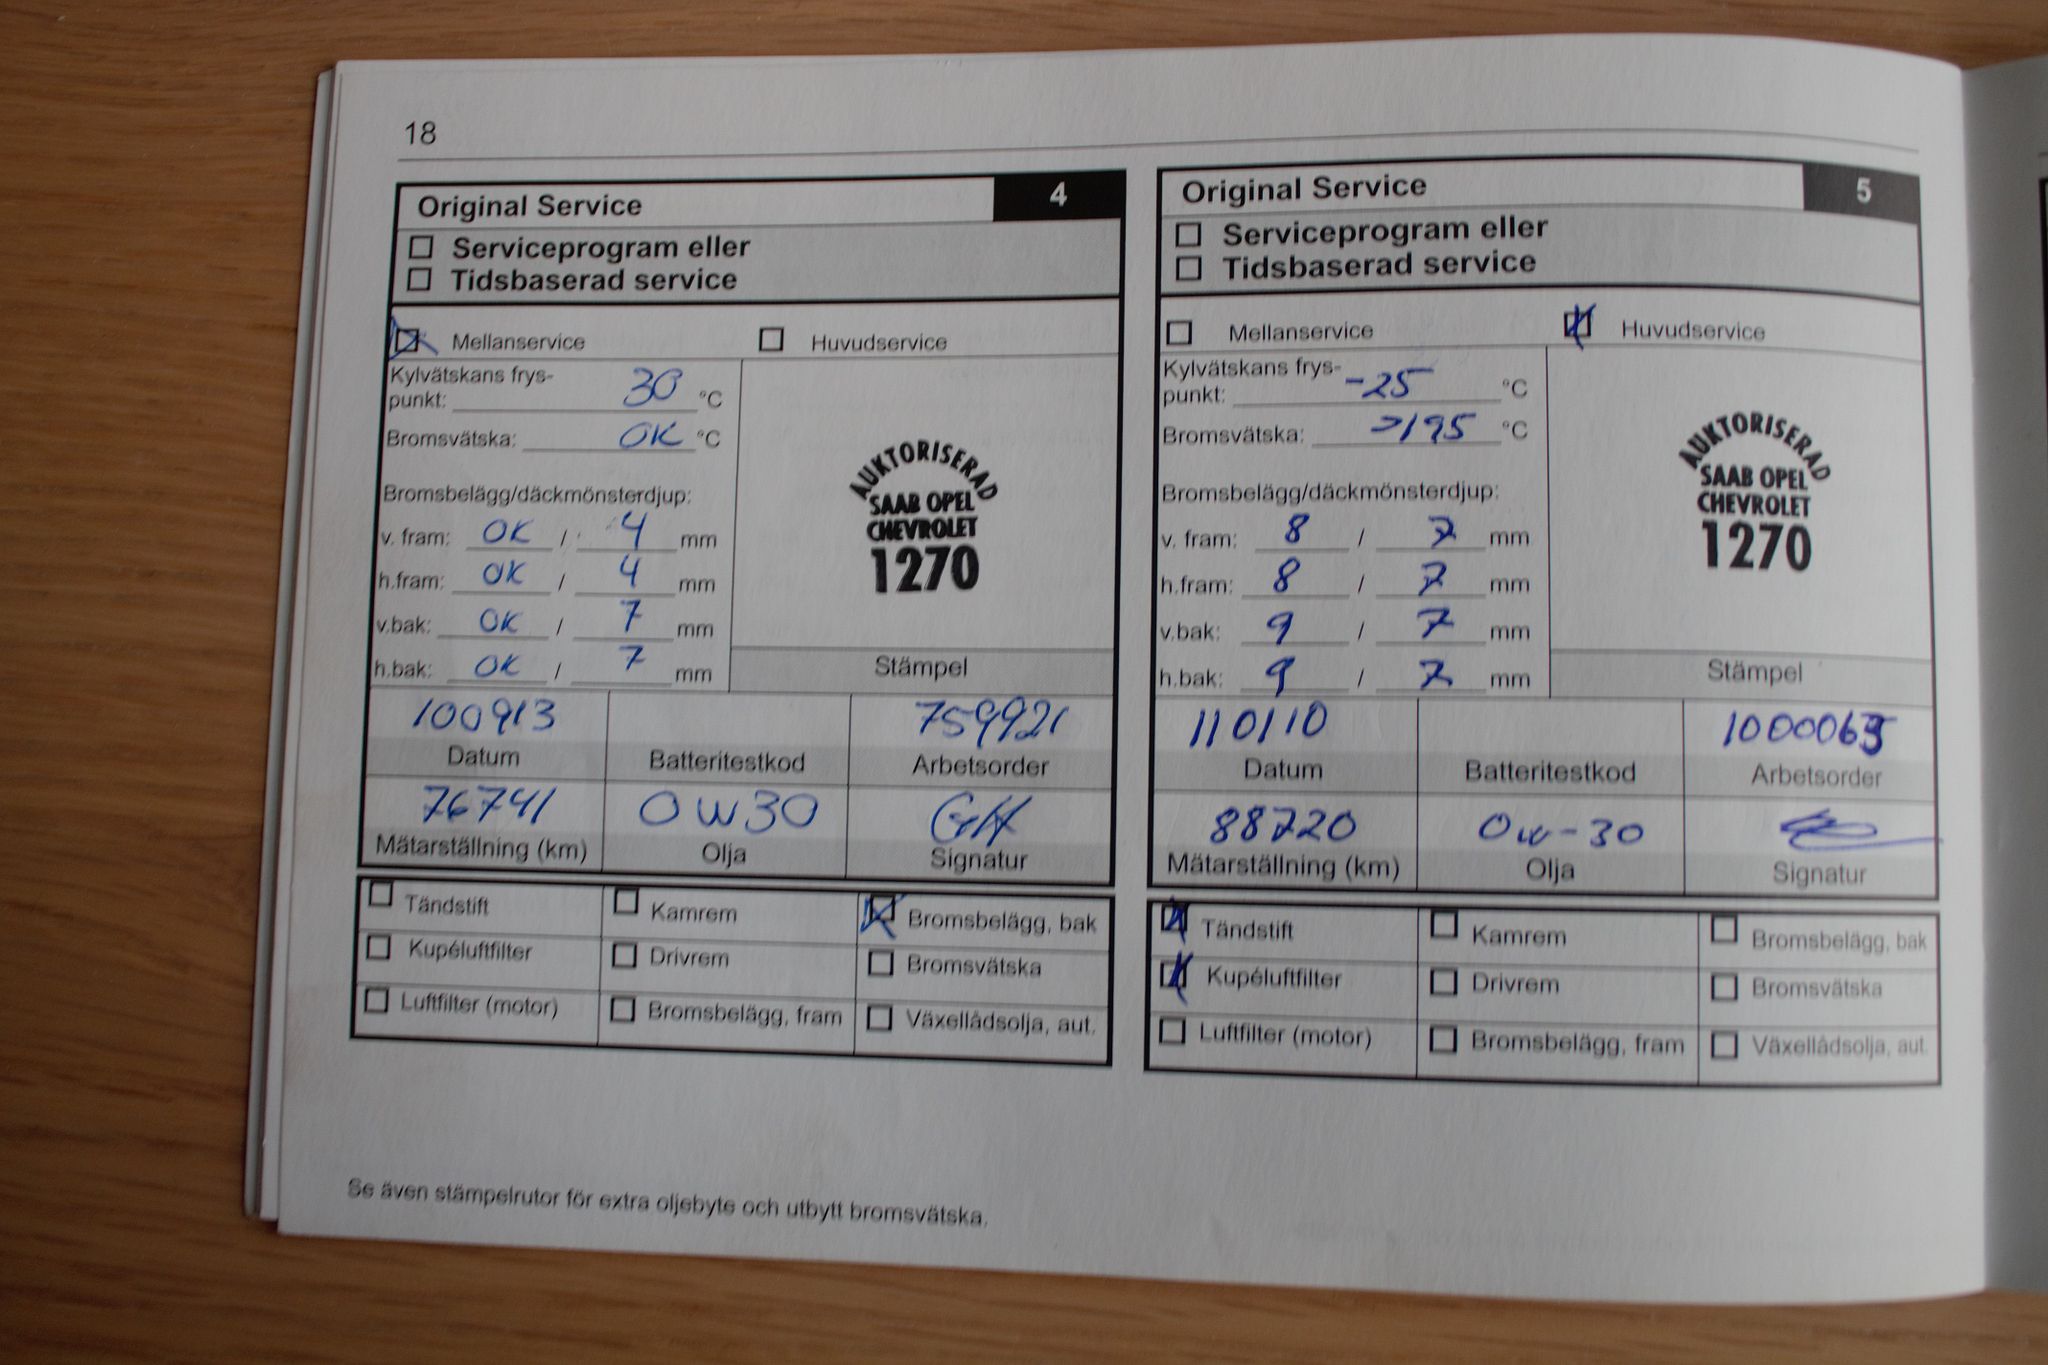 18
Original Service 4
Serviceprogram eller
Tidsbaserad service
Mellanservice Huvudservice
Kylvätskans frys-
punkt: 30 °C
Bromsvätska: OK °C
Bromsbelägg/däckmönsterdjup:
v. fram: OK / 4 mm
h.fram: OK / 4 mm
v.bak: OK / 7 mm
h.bak: OK / 7 mm
AUKTORISERAD
SAAB OPEL
CHEVROLET
1270
Stämpel
100913 759921
Datum Batteritestkod Arbetsorder
76741 OW30 GH
Mätarställning (km) Olja Signatur
Tändstift Kamrem Bromsbelägg, bak
Kupéluftfilter Drivrem Bromsvätska
Luftfilter (motor) Bromsbelägg, fram Växellådsolja, aut.
Original Service 5
Serviceprogram eller
Tidsbaserad service
Mellanservice Huvudservice
Kylvätskans frys-
punkt: -25 °C
Bromsvätska: >195 °C
Bromsbelägg/däckmönsterdjup:
v. fram: 8 / 7 mm
h.fram: 8 / 7 mm
v.bak: 9 / 7 mm
h.bak: 9 / 7 mm
AUKTORISERAD
SAAB OPEL
CHEVROLET
1270
Stämpel
110110
Datum Batteritestkod Arbetsorder
88720 Ow-30
Mätarställning (km) Olja Signatur
Tändstift Kamrem Bromsbelägg, bak
Kupéluftfilter Drivrem Bromsvätska
Luftfilter (motor) Bromsbelägg, fram Växellådsolja, aut.
Se även stämpelrutor för extra oljebyte och utbytt bromsvätska.